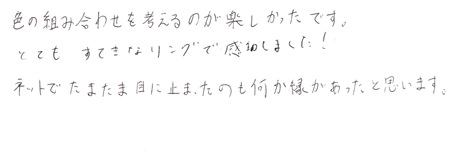 色の組み合わせを考えるのが楽しかったです。
とても すてきなリングで感動しました!
ネットでたまたま目に止まったのも何か縁があったと思います。